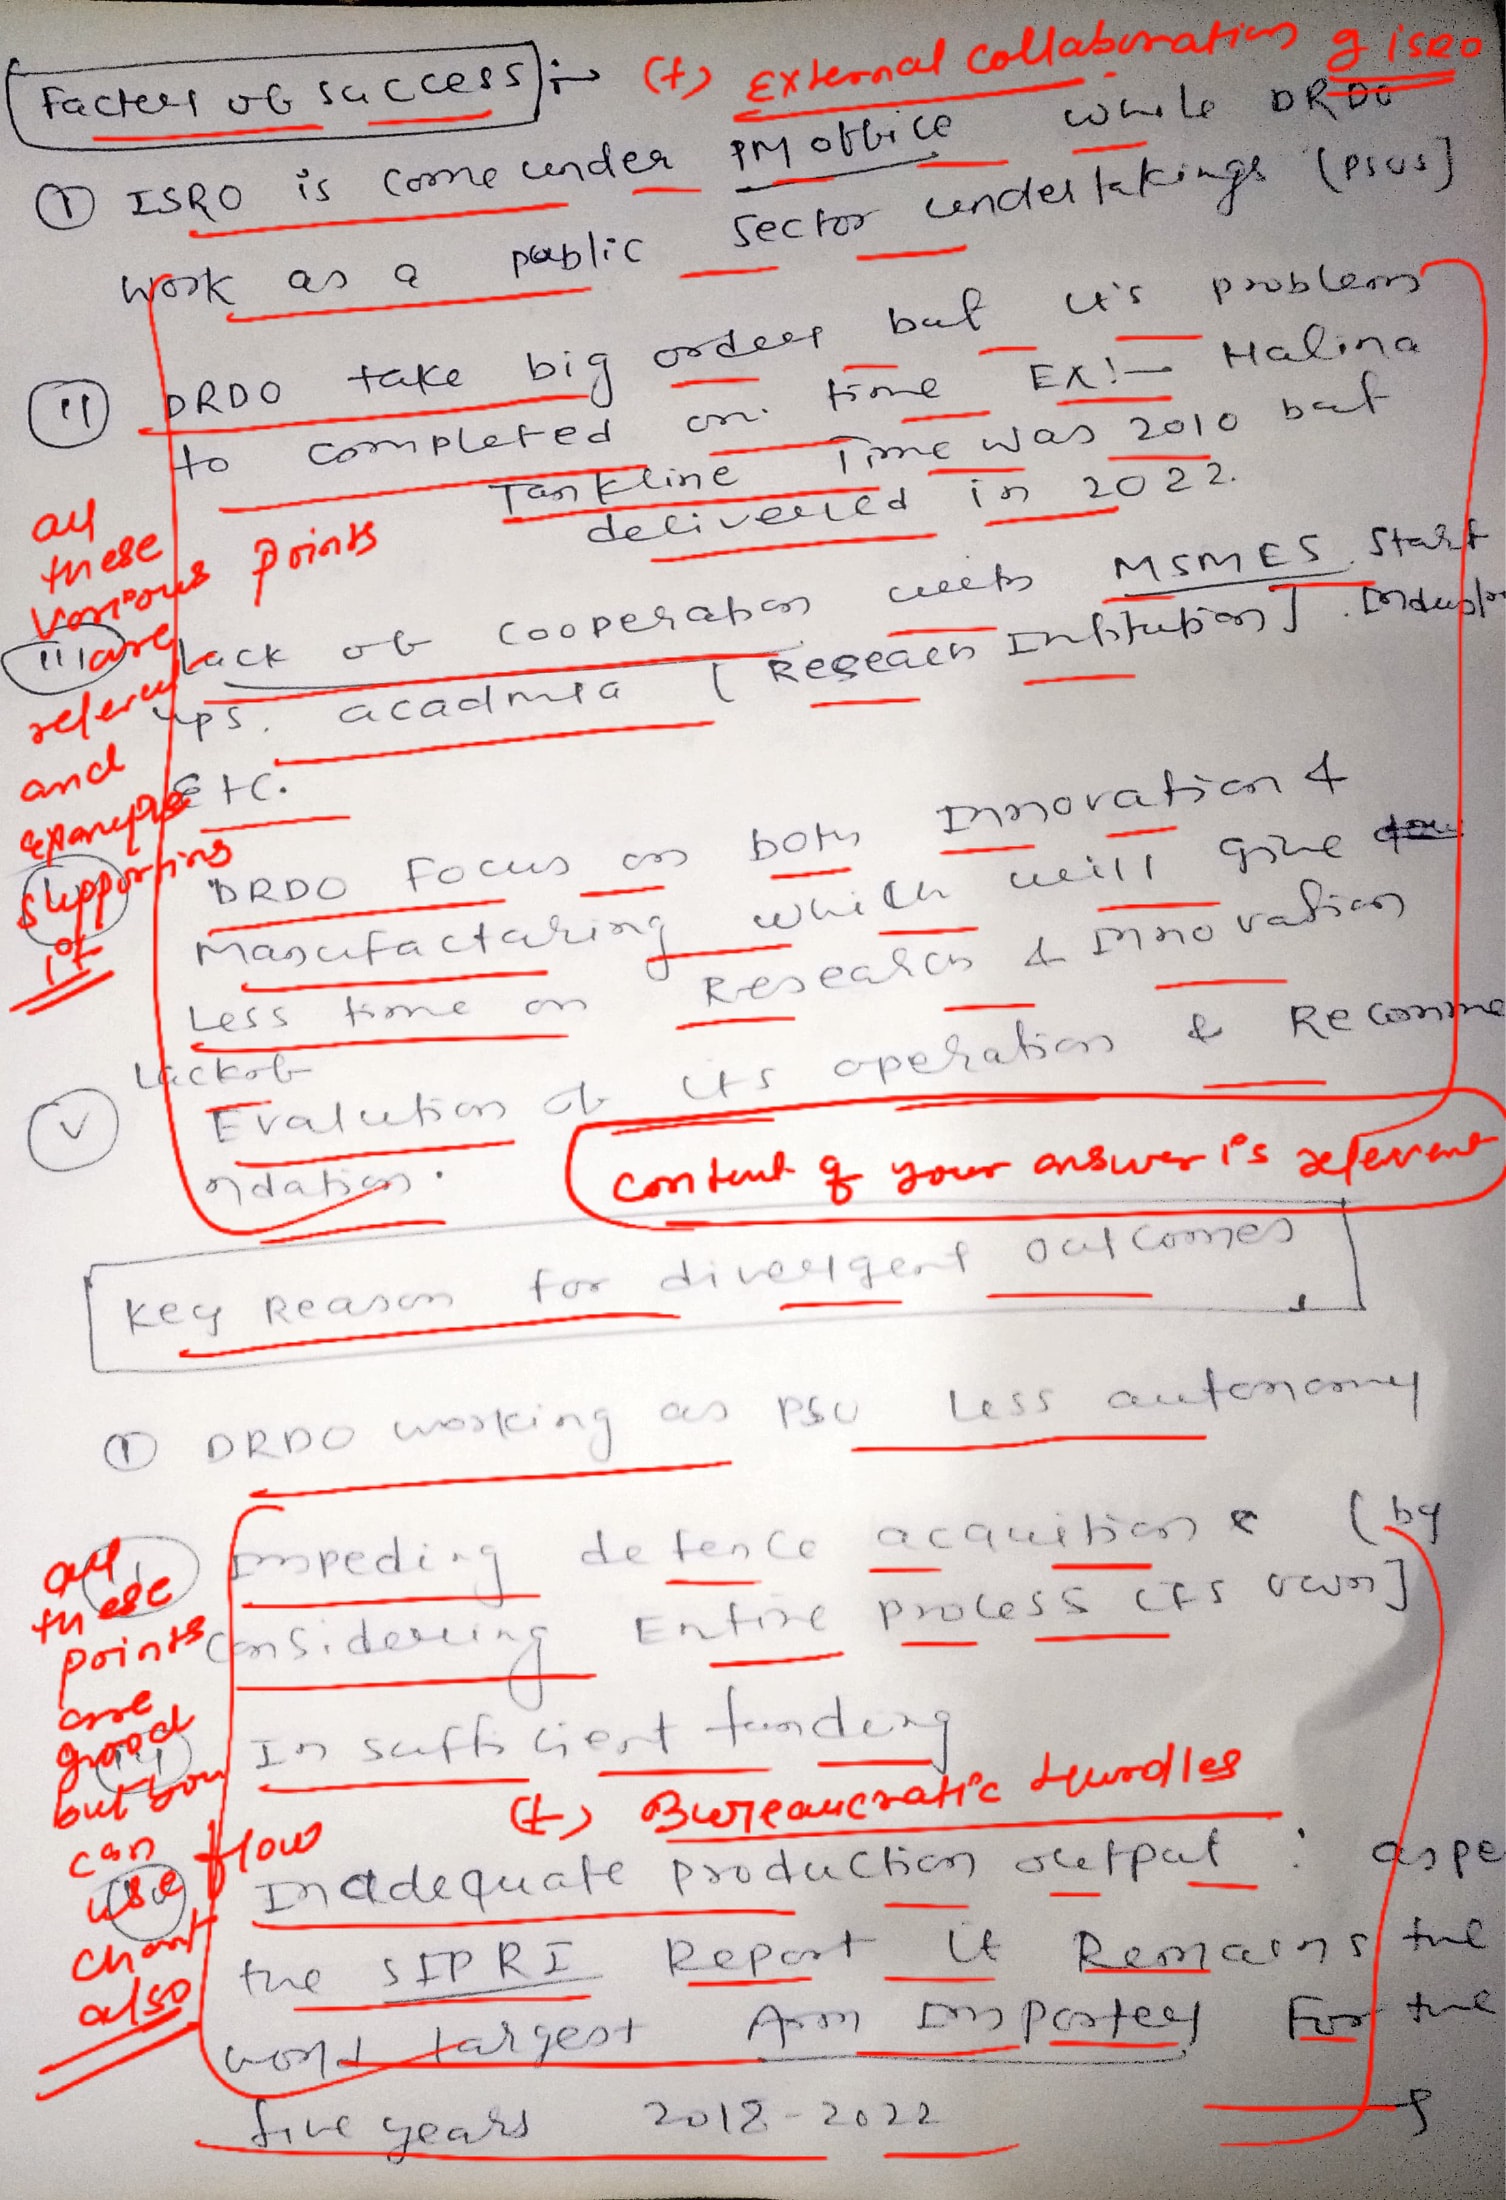 Facters of success :- (+) External collaboration of isro
① ISRO is come under PM office while DRDO
work as a public sector undertakings (PSUs]
(ii) DRDO take big orders but it's problem
to completed on time EX:- Halina
Tankline Time was 2010 but
delivered in 2022.
all these various points are relevent and example supporting it
(iii) Lack of cooperation with MSMES, Start
ups. acadmia [ Reseach Institution]. Industr
Etc.
DRDO Focus on both Innovation &
Manufacturing which will give
Less time on Research & Innovation
(v) Lack of
Evalution of its operation & Recomme
ndation.
Content of your answer is relevent
Key Reason for divergent outcomes
① DRDO working as PSU Less autonomy
Impeding defence acquition (by
considering Entire process its own]
all these points are good but you can use flow chart also
Insufficient funding
(+) Bureaucratic Hurdles
Inadequate production output : aspe
the SIPRI Report it Remains the
world largest Arm Importer For the
five years 2018-2022